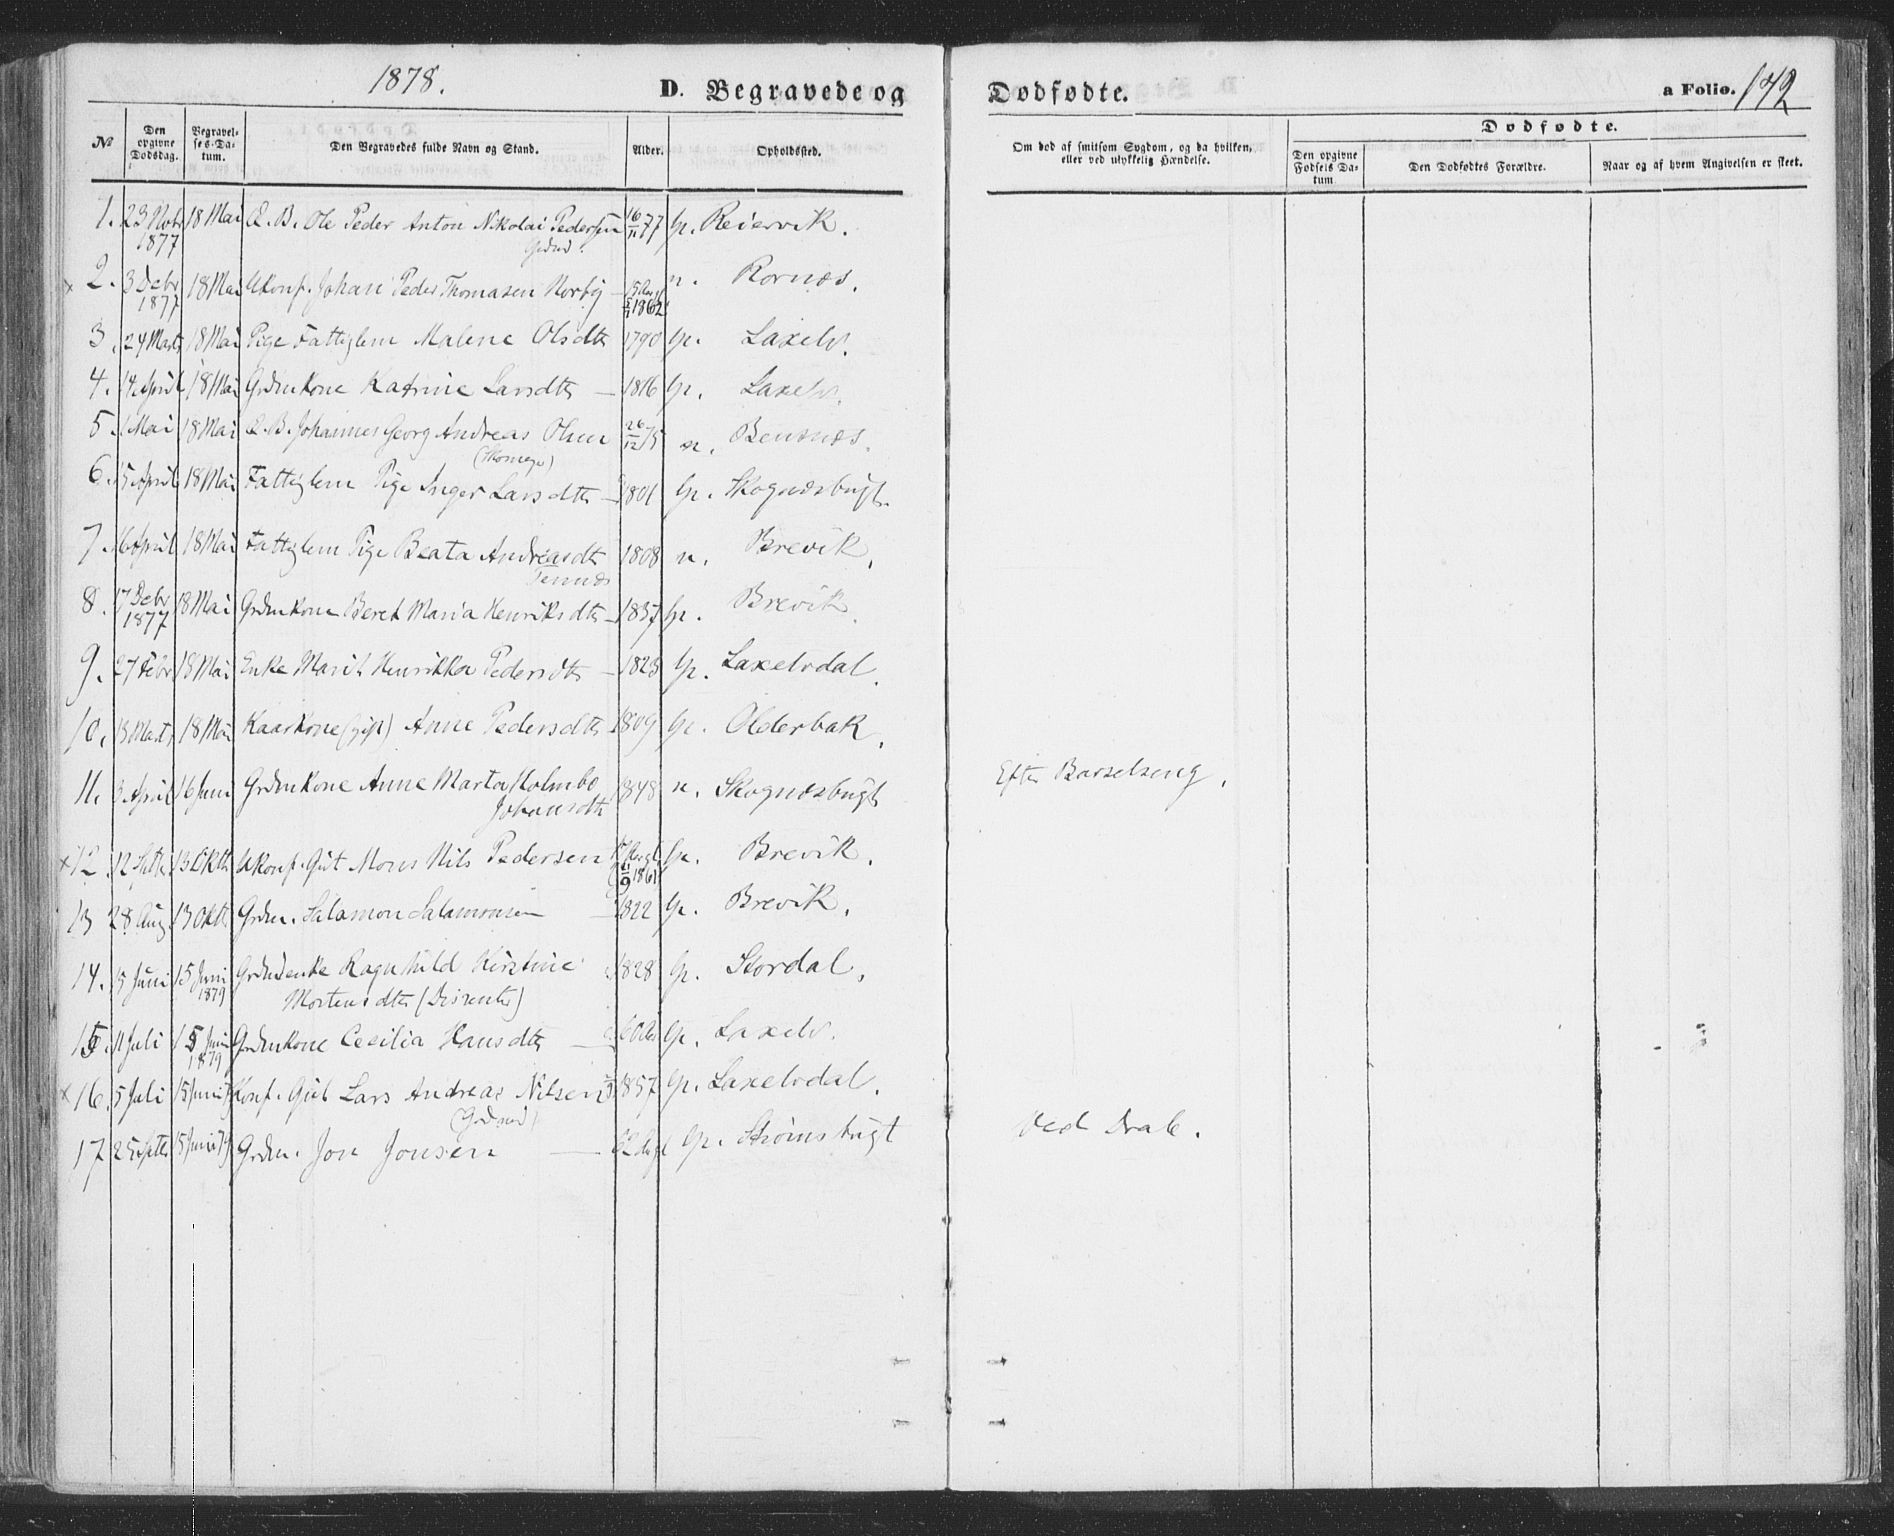 1878.
D. Begravede og Dødfødte.
a Folio. 142
№
Den opgivne Dødsdag.
Begravelses-Datum.
Den Begravedes fulde Navn og Stand.
Alder.
Opholdssted.
Om død af smitsom Sygdom, og da hvilken, eller ved ulykkelig Hændelse.
Dødfødte.
Den opgivne Fødsels Datum
Den Dødfødtes Forældre.
Naar og af hvem Angivelsen er skeet.
1. 23 Novbr 1877 18 Mai Ole Peder Anton Nikolai Pedersen 16/11 77 Reiervik.
2. 3 Debr 1877 18 Mai Ukonf. Johan Peder Thomasen Norby 1862 n. Rornæs.
3. 24 Marts 18 Mai Pige Fattiglem Malene Olsdtr 1790 Laxelv.
4. 14 April 18 Mai Grdmkone Katrine Larsdtr – 1816 Laxelv.
5. 1 Mai 18 Mai Johannes Georg Andreas Olsen 26/12 75 n. Bensnæs.
6. 15 April 18 Mai Fattiglem Pige Inger Larsdtr – 1801 Skognæsbugt.
7. 16 April 18 Mai Fattiglem Pige Beata Andreasdtr 1808 n. Brevik.
Tennæs
8. 17 Debr 1877 18 Mai Grdmkone Beret Maria Henriksdtr – 1837 Brevik.
9. 27 Febr 18 Mai Enke Marit Henrikka Pedersdtr – 1823 Laxelvdal.
10. 18 Mai Kaarkone (gift) Anne Pedersdtr 1809 Olderbak.
11. 3 April 16 Juni Grdmkone Anne Marta Holmbo 1848 n. Skognæsbugt Efter Barselseng.
Johansdtr
12. 12 Septbr 13 Oktbr Ukonf. Gut Mons Nils Pedersen 1861 Brevik.
13 28 Aug 13 Oktbr Grdm. Salamon Salamonsen – 1822 Brevik.
14. 5 Juni 15 Juni 1879 Grdmdenke Ragnhild Kirstine 1828 Stordal.
Mortensdtr (Dissenter)
15. 11 Juli 15 Juni 1879 Grdmkone Cecilia Hansdtr – 60 Aar Laxelv.
16. 5 Juli 15 Juni 79 Konf. Gut Lars Andreas Nilsen 1857 Laxelvdal.
17 25 Septbr 15 Juni 79 Grdm. Jon Jonsen – Strømsbugt Ved Drab.